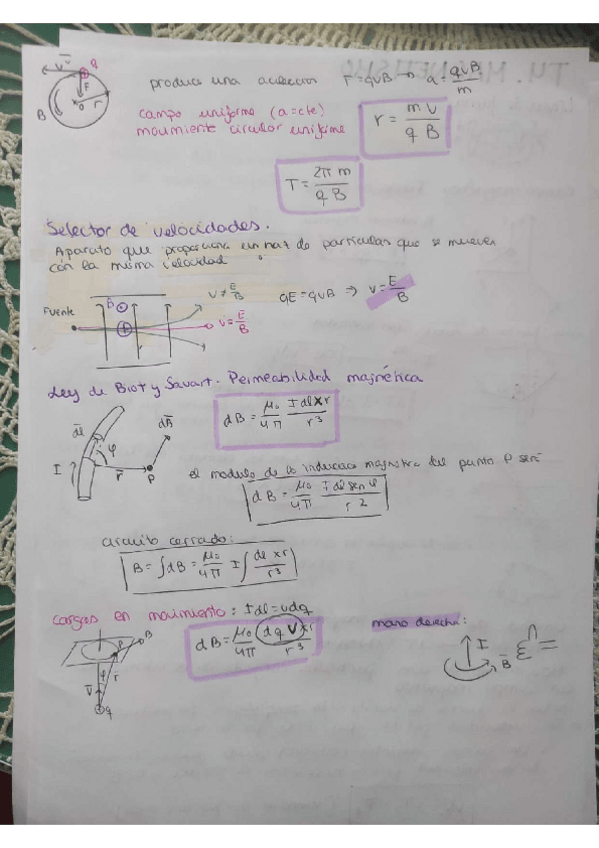 produce una aceleracion F=qvB → a = qvB/m
campo uniforme (a=cte)
movimiento circular uniforme
r = m v / q B
T = 2π m / q B
Selector de velocidades.
Aparato que proporciona un haz de particulas que se mueven
con la misma velocidad
Fuente
B
v ≠ E/B
v = E/B
qE = qvB ⇒ v = E/B
Ley de Biot y Savart. Permeabilidad magnética
dB = μ₀/4π I dl x r / r³
dl
φ
I
r
P
dB
el modulo de la induccion magnetica del punto P será
dB = μ₀/4π I dl sen φ / r²
circuito cerrado:
B = ∫dB = μ₀/4π I ∫ dl x r / r³
cargas en movimiento: I dl = v dq
dB = μ₀/4π dq v x r / r³
mano derecha:
I
B
P
B
r
v
q